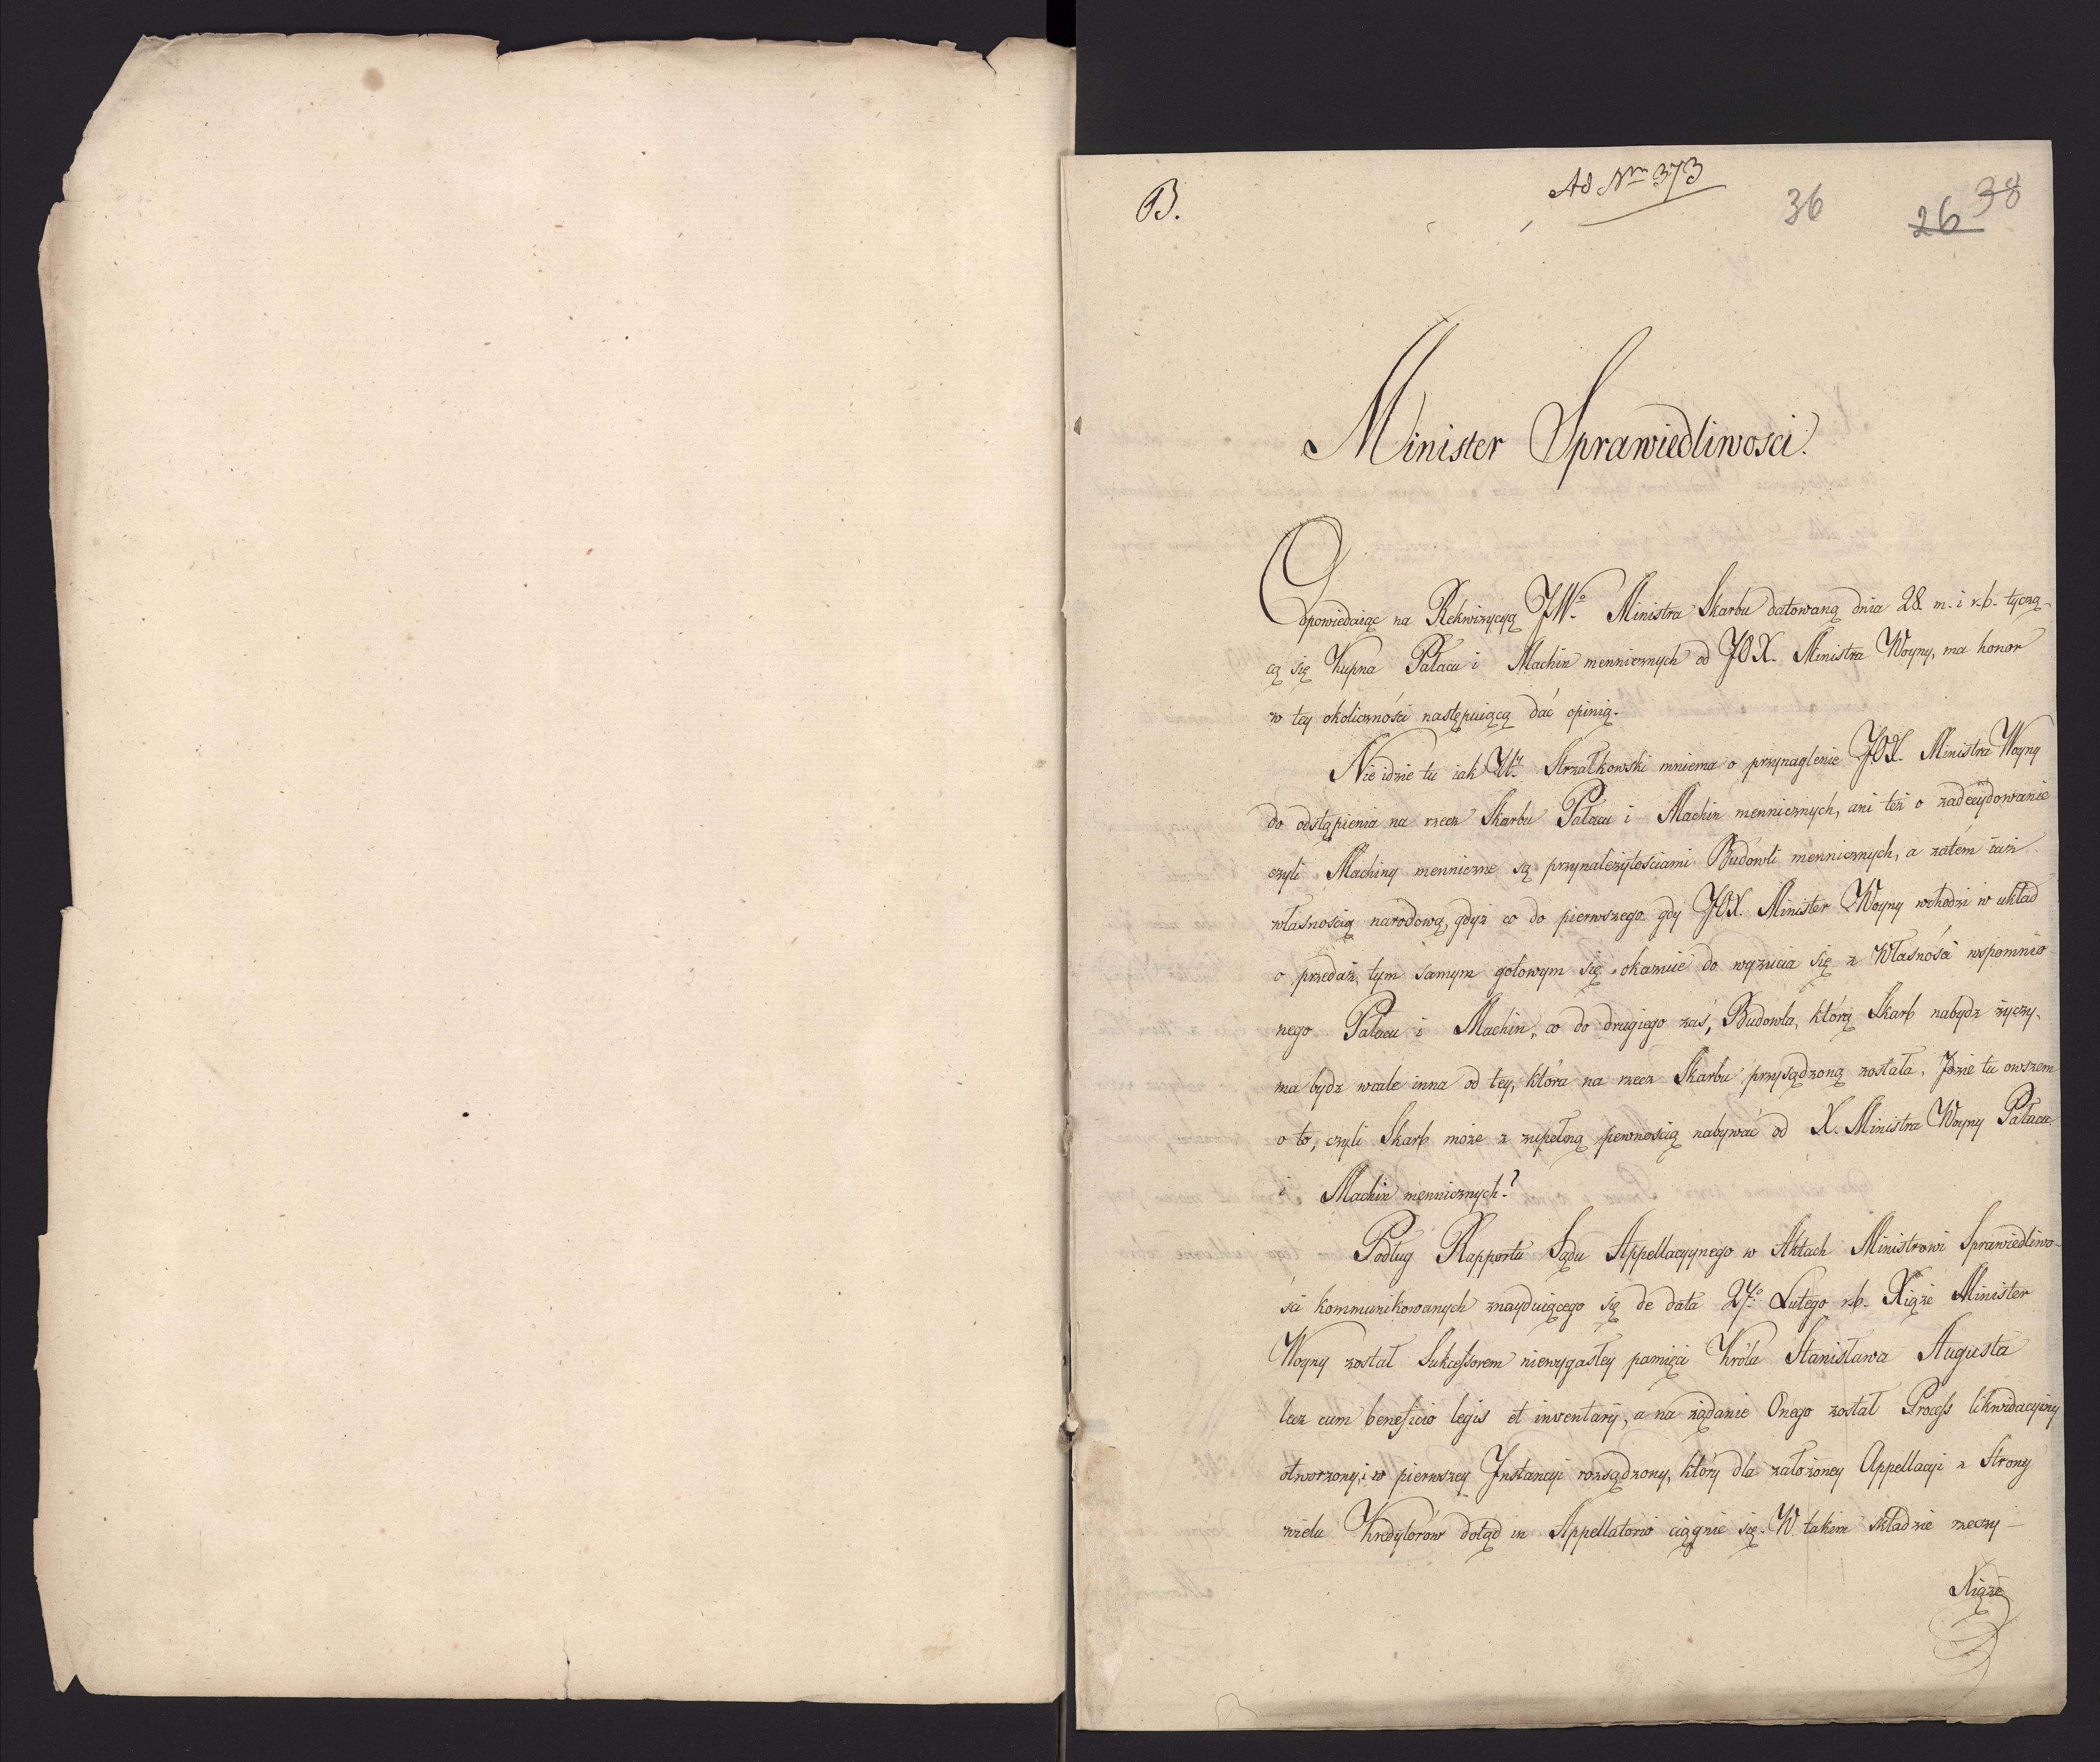 B.
Ad Nrm 373
36
26 38
Minister Sprawiedliwosci.
Odpowiedaiąc na Rekwizycyą JWo. Ministra Skarbu datowaną dnia 28 m. i r. b. tyczą-
cą się Kupna Pałacu i Machin menniczych od JOX. Ministra Woyny, ma honor
w tey okoliczności następuiącą dać opinią.
Nie idzie tu iak Strzałkowski mniema o przynaglenie JOX. Ministra Woyny
do odstąpienia na rzecz Skarbu Pałacu i Machin mennicznych, ani też o zadecydowanie
czyli Machiny menniczne są przynależytościami Budowli mennicznych, a zatém iuż
własnością narodową, gdyż co do pierwszego gdy JOX. Minister Woyny wchodzi w układ
o przedaż, tym samym gotowym się okazuie do wyzucia się z Własności wspomnio-
nego Pałacu i Machin, co do drugiego zaś, Budowla, którą Skarb nabydz życzy,
ma bydz wcale inna od tey, która na rzecz Skarbu przysądzoną została. Jdzie tu owszem
o to, czyli Skarb może z zupełną pewnością nabywać od X. Ministra Woyny Pałacu
i Machin mennicznych?
Podług Rapportu Sądu Appellacyynego w Aktach Ministrowi Sprawiedliwo-
ści kommunikowanych znayduiącego się de data 27o. Lutego r. b. Xiąże Minister
Woyny został Sukcessorem niewygasłey pamięci Króla Stanisława Augusta
lecz cum beneficio legis et inventarij, a na żądanie Onego został Process likwidacyiny
otworzony, i w pierwszey Jnstancyi rozsądzony, który dla założoney Appellacyi z Strony
wielu Kredytorów dotąd in Appellatorio ciągnie się. W takim składzie rzeczy –
Xiąże